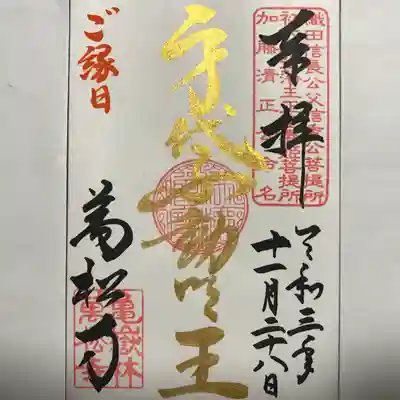 奉拝
織田信長公父信秀公菩提所
令和三年
十一月二十八日
身代不動明王
ご縁日
萬松寺
亀嶽林
萬松寺